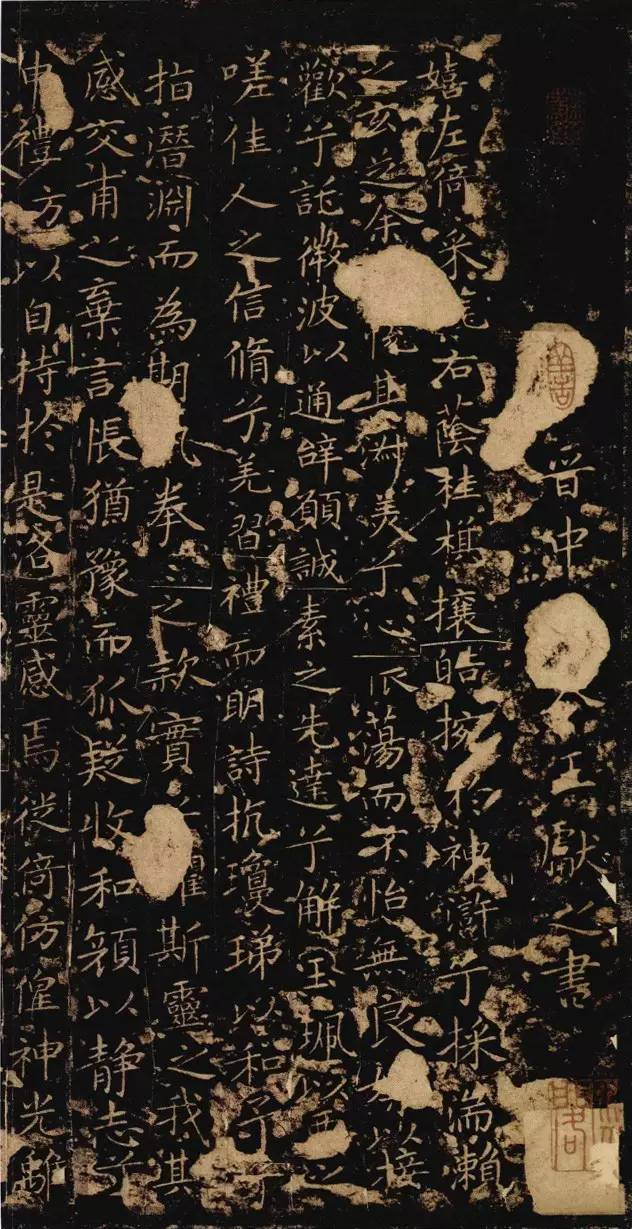 晋中令王獻之書
嬉左倚采旄右蔭桂旗攘皓捥於神滸兮採湍瀨
之玄芝余悅其淑美兮心振蕩而不怡無良媒以接
歡兮託微波以通辭願誠素之先達兮解玉珮以要之
嗟佳人之信脩兮羌習禮而明詩抗瓊珶以和予兮
指潛淵而為期執拳〻之款實兮懼斯靈之我其
感交甫之棄言悵猶豫而狐疑收和顏以静志兮
申禮方以自持於是洛靈感焉徙倚仿偟神光離